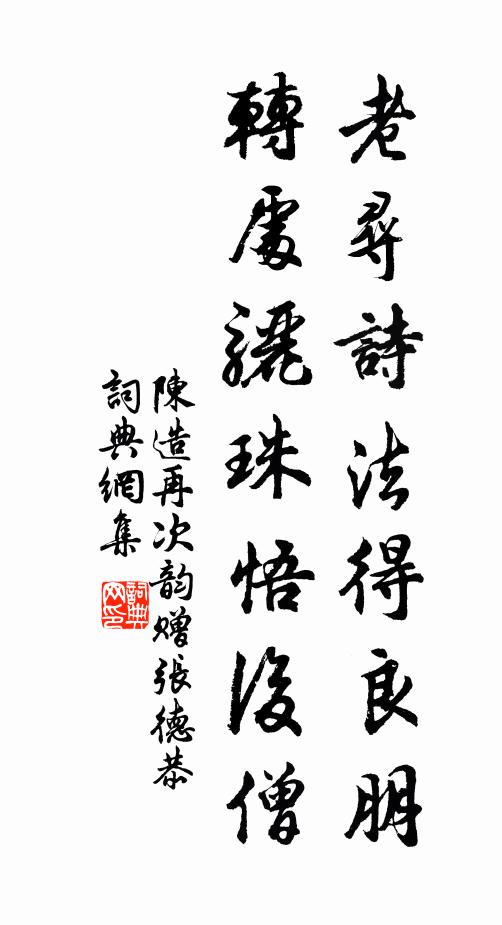 老尋詩法得良朋
轉處驪珠悟後僧
陳造再次韵贈張德恭
詞典網集
詞典網印